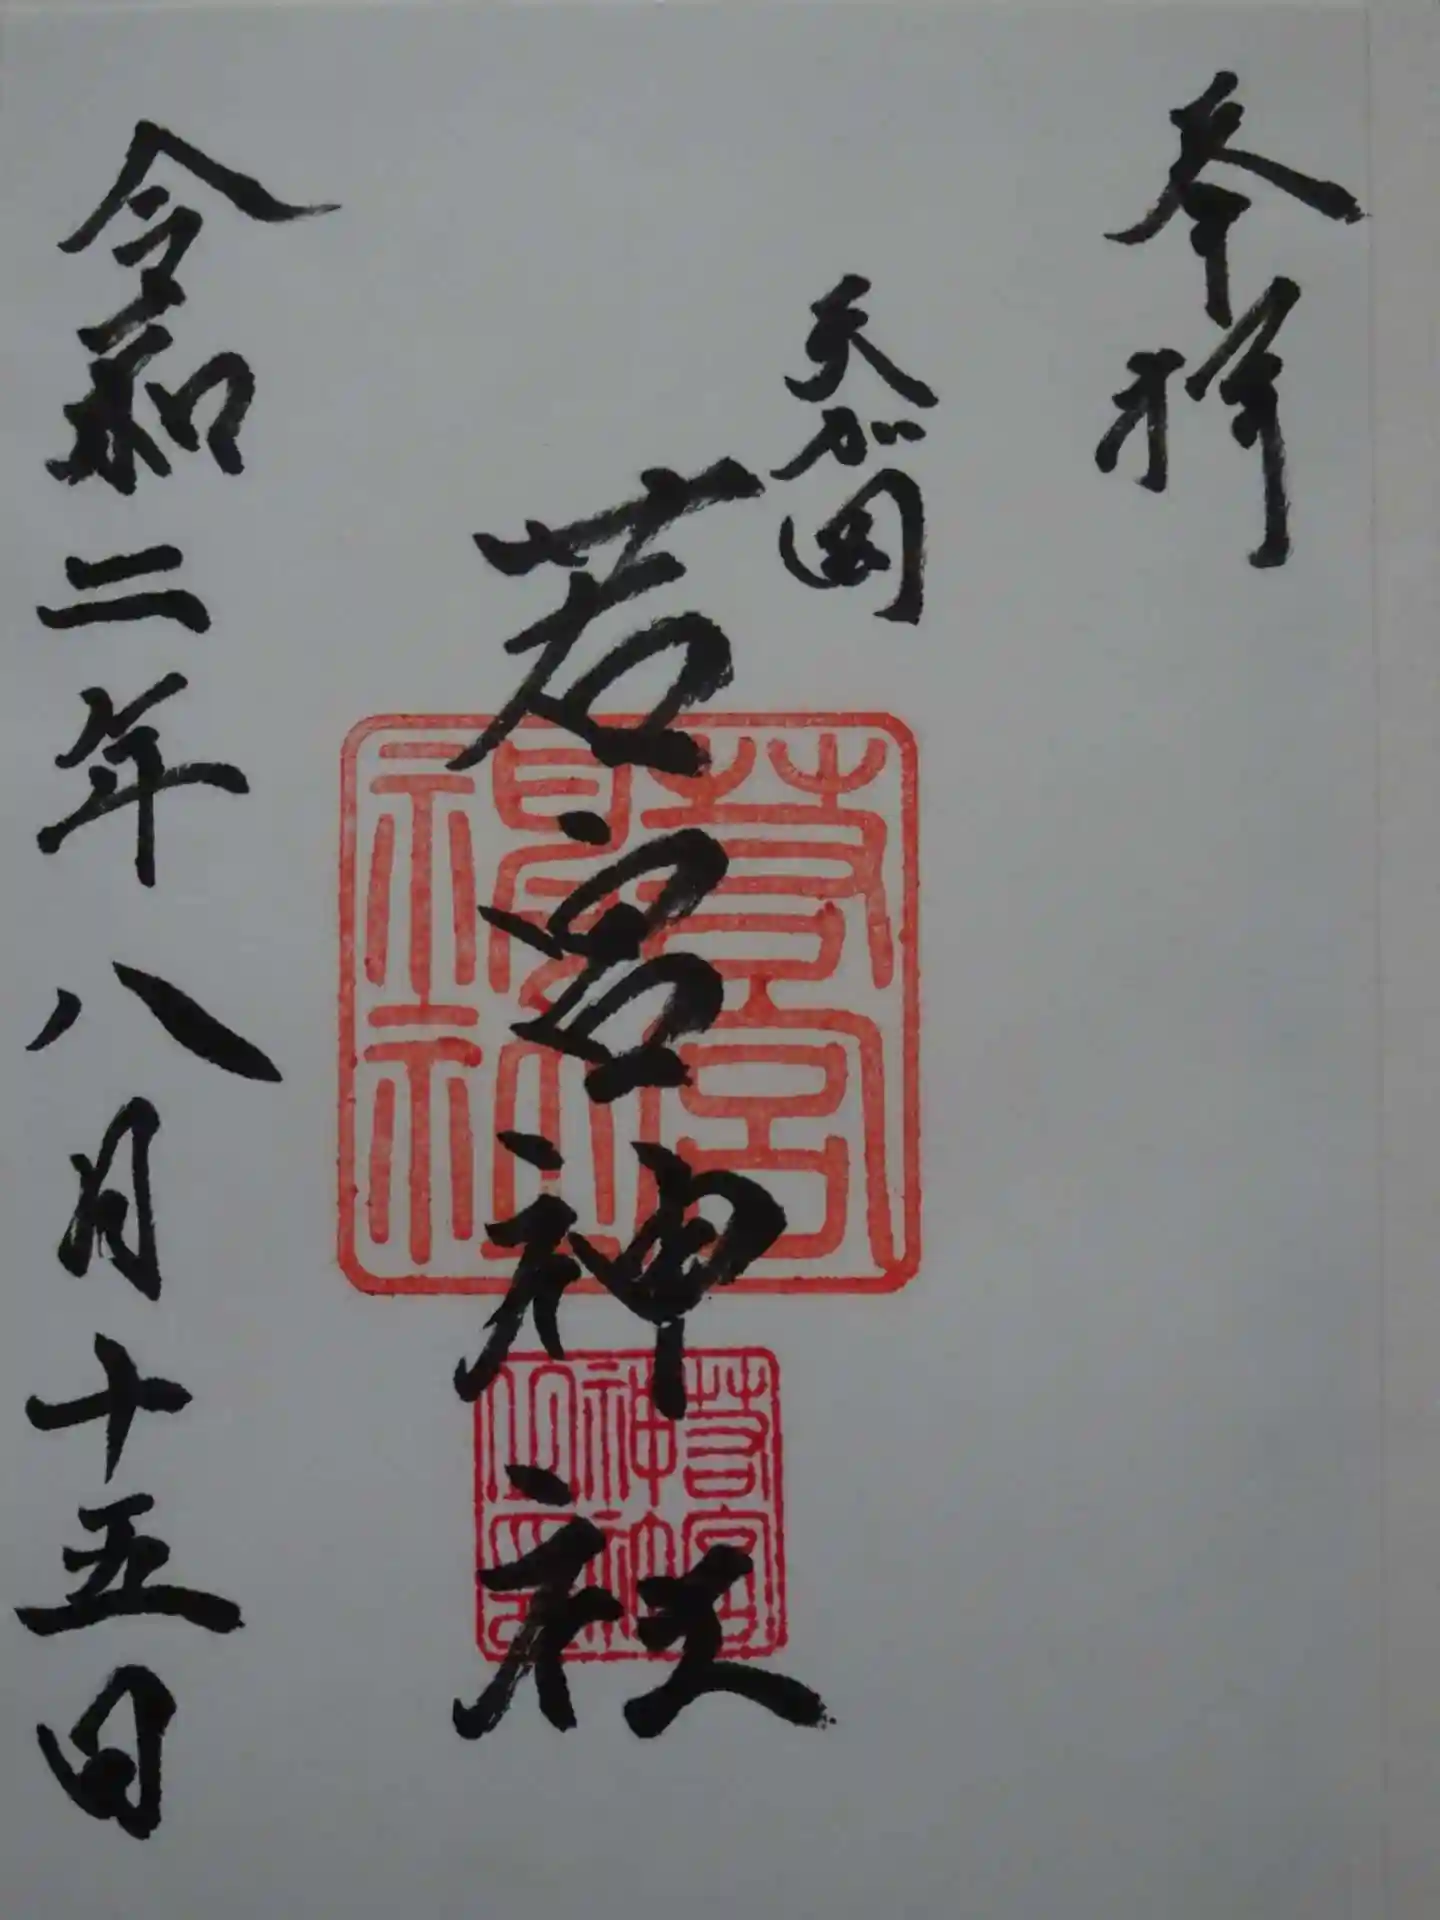 奉拝
若宮神社
令和二年八月十五日
若宮
神社
若宮
神社
之印